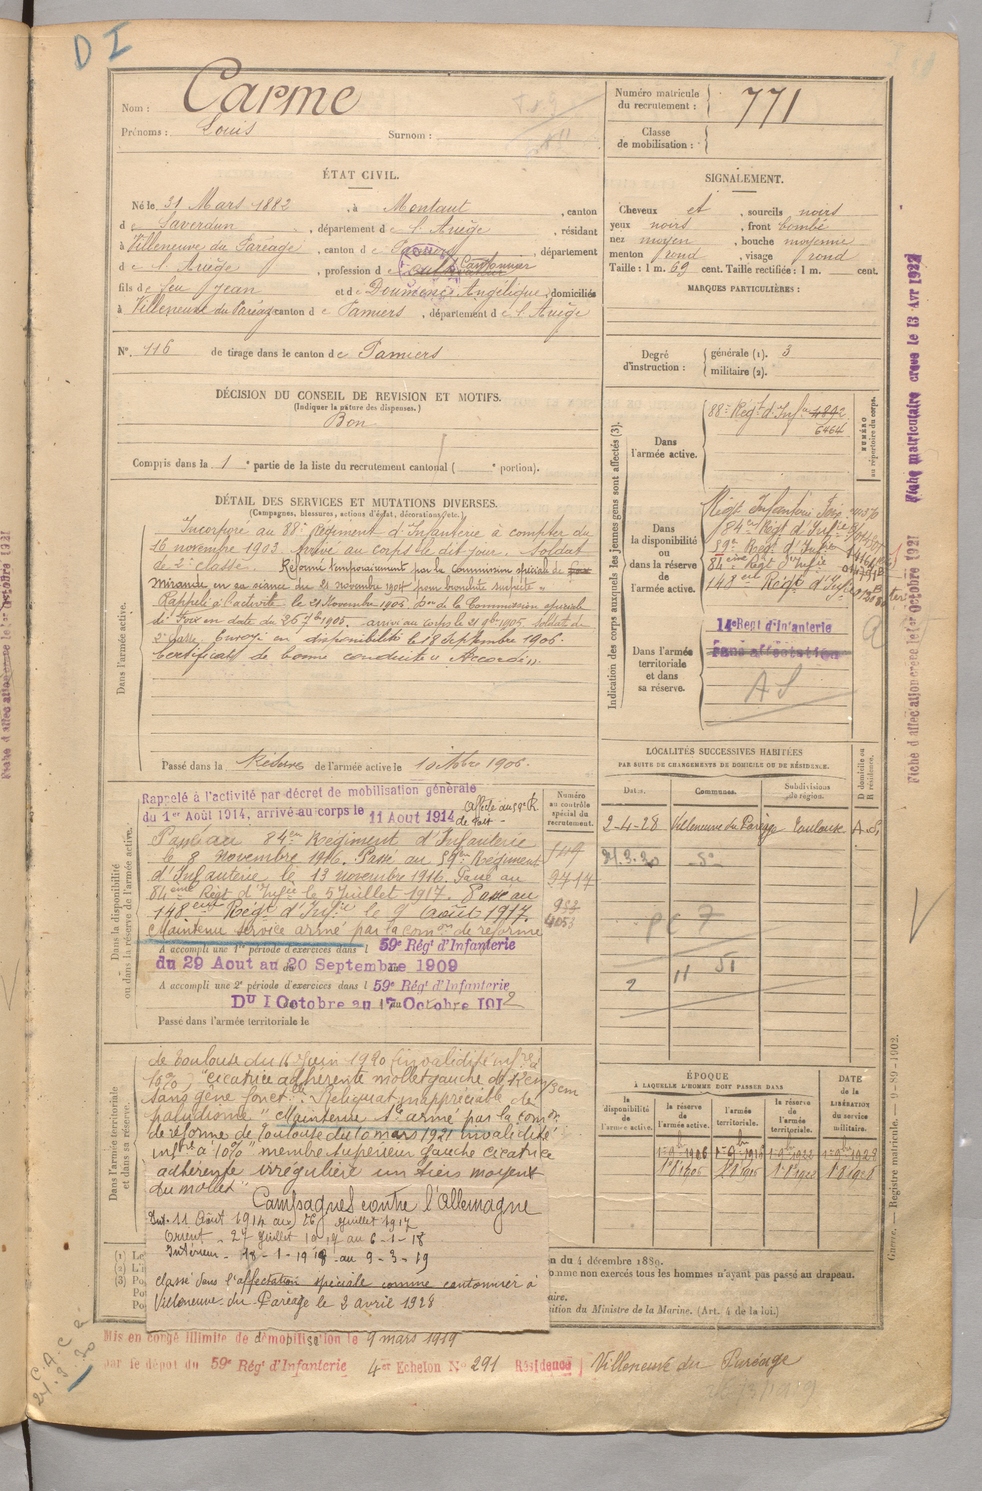 D I
Nom : Carme
Prénoms : Louis
Surnom :
Numéro matricule du recrutement : 771
Classe de mobilisation :
ÉTAT CIVIL.
Né le 31 Mars 1882, à Montaut, canton
de Saverdun, département de l'Ariège, résidant
à Villeneuve du Paréage, canton de Pamiers, département
de l'Ariège, profession de Cultivateur Cantonnier
fils de feu Jean et de Doumenc Angélique, domiciliés
à Villeneuve du Paréage canton de Pamiers, département de l'Ariège
N° 116 de tirage dans le canton de Pamiers
SIGNALEMENT.
Cheveux et, sourcils noirs
yeux noirs, front bombé
nez moyen, bouche moyenne
menton rond, visage rond
Taille : 1 m. 69 cent. Taille rectifiée : 1 m. cent.
MARQUES PARTICULIÈRES :
Degré d'instruction : générale (1). 3
militaire (2).
DÉCISION DU CONSEIL DE REVISION ET MOTIFS.
(Indiquer la nature des dispenses.)
Bon
Compris dans la 1e partie de la liste du recrutement cantonal ( e portion).
DÉTAIL DES SERVICES ET MUTATIONS DIVERSES.
(Campagnes, blessures, actions d'éclat, décorations, etc.)
Dans l'armée active.
Incorporé au 88e Régiment d'Infanterie à compter du
16 novembre 1903. Arrivé au corps le dit jour. Soldat
de 2e classe. Réformé temporairement par la Commission spéciale de
Mirande en sa séance du 21 novembre 1904 pour bronchite suspecte
Rappelé à l'activité le 21 Novembre 1905. Don de la Commission spéciale
de Foix en date du 26 7bre 1905. arrivé au corps le 21 9bre 1905 soldat de
2e classe. Envoyé en disponibilité le 18 Septembre 1906.
Certificat de bonne conduite "Accordé".
Passé dans la Réserve de l'armée active le 1 octobre 1906.
Indication des corps auxquels les jeunes gens sont affectés (3).
NUMÉRO au répertoire du corps.
Dans l'armée active.
88e Régt d'Infie 4892
6464
Dans la disponibilité ou dans la réserve de l'armée active.
Régt Infanterie Foix
84e Régt d'Infie
59e Régt d'Infie
84ème Régt d'Infie
148ème Régt d'Infie
Dans l'armée territoriale et dans sa réserve.
14e Régt d'Infanterie
Sans affectation
A S
Fiche matriculaire créée le 13 Avr 1922
Fiche d'affectation créée le 1er Octobre 1921
Dans la disponibilité ou dans la réserve de l'armée active.
Rappelé à l'activité par décret de mobilisation générale
du 1er Août 1914, arrivé au corps le 11 Aout 1914
Affecté au 59e R.
de Foix
Passé au 84ème Régiment d'Infanterie
le 8 Novembre 1916. Passé au 59e Régiment
d'Infanterie le 13 novembre 1916. Passé au
84ème Régt d'Infie le 5 Juillet 1917. Passé au
148ème Régt d'Infie le 9 Août 1917.
Maintenu service armé par la comon de réforme
A accompli une 1re période d'exercices dans l 59e Régt d'Infanterie
du 29 Aout au 20 Septembre 1909
A accompli une 2e période d'exercices dans l 59e Régt d'Infanterie
Du 1 Octobre au 17 Octobre 1912
Passé dans l'armée territoriale le
Numéro au contrôle spécial du recrutement.
9717
982
4053
LOCALITÉS SUCCESSIVES HABITÉES
PAR SUITE DE CHANGEMENTS DE DOMICILE OU DE RÉSIDENCE.
Dates. Communes. Subdivisions de région. D domicile ou R résidence.
2-4-28 Villeneuve du Paréage Toulouse A.S.
21.3.30 do
Dans l'armée territoriale et dans sa réserve.
de Toulouse du 16 Juin 1920 (invalidité infre à
10%) "cicatrice adhérente mollet gauche de 12cm/3cm
sans gêne fonctlle. Reliquat inappréciable de
paludisme" Maintenu sce armé par la comon
de réforme de Toulouse du 10 mars 1921 invalidité
infre à 10% "membre supérieur gauche cicatrice
adhérente irrégulière un tiers moyen
du mollet"
Campagnes contre l'Allemagne
Int. 11 Août 1914 au 26 juillet 1917
Orient - 27 juillet 1917 au 6-1-18
Intérieur - 18-1-1918 au 9-3-19
Classé dans l'affectation spéciale comme cantonnier à
Villeneuve du Paréage le 2 avril 1928
ÉPOQUE
À LAQUELLE L'HOMME DOIT PASSER DANS
la disponibilité de l'armée active. la réserve de l'armée active. l'armée territoriale. la réserve de l'armée territoriale.
DATE de la LIBÉRATION du service militaire.
on du 4 décembre 1889.
omme non exercés tous les hommes n'ayant pas passé au drapeau.
aire.
sition du Ministre de la Marine. (Art. 4 de la loi.)
Guerre. — Registre matricule. — 9-89-1902.
Mis en congé illimité de démobilisation le 9 mars 1919
par le dépôt du 59e Régt d'Infanterie 4er Echelon No 291 Résidence Villeneuve du Paréage